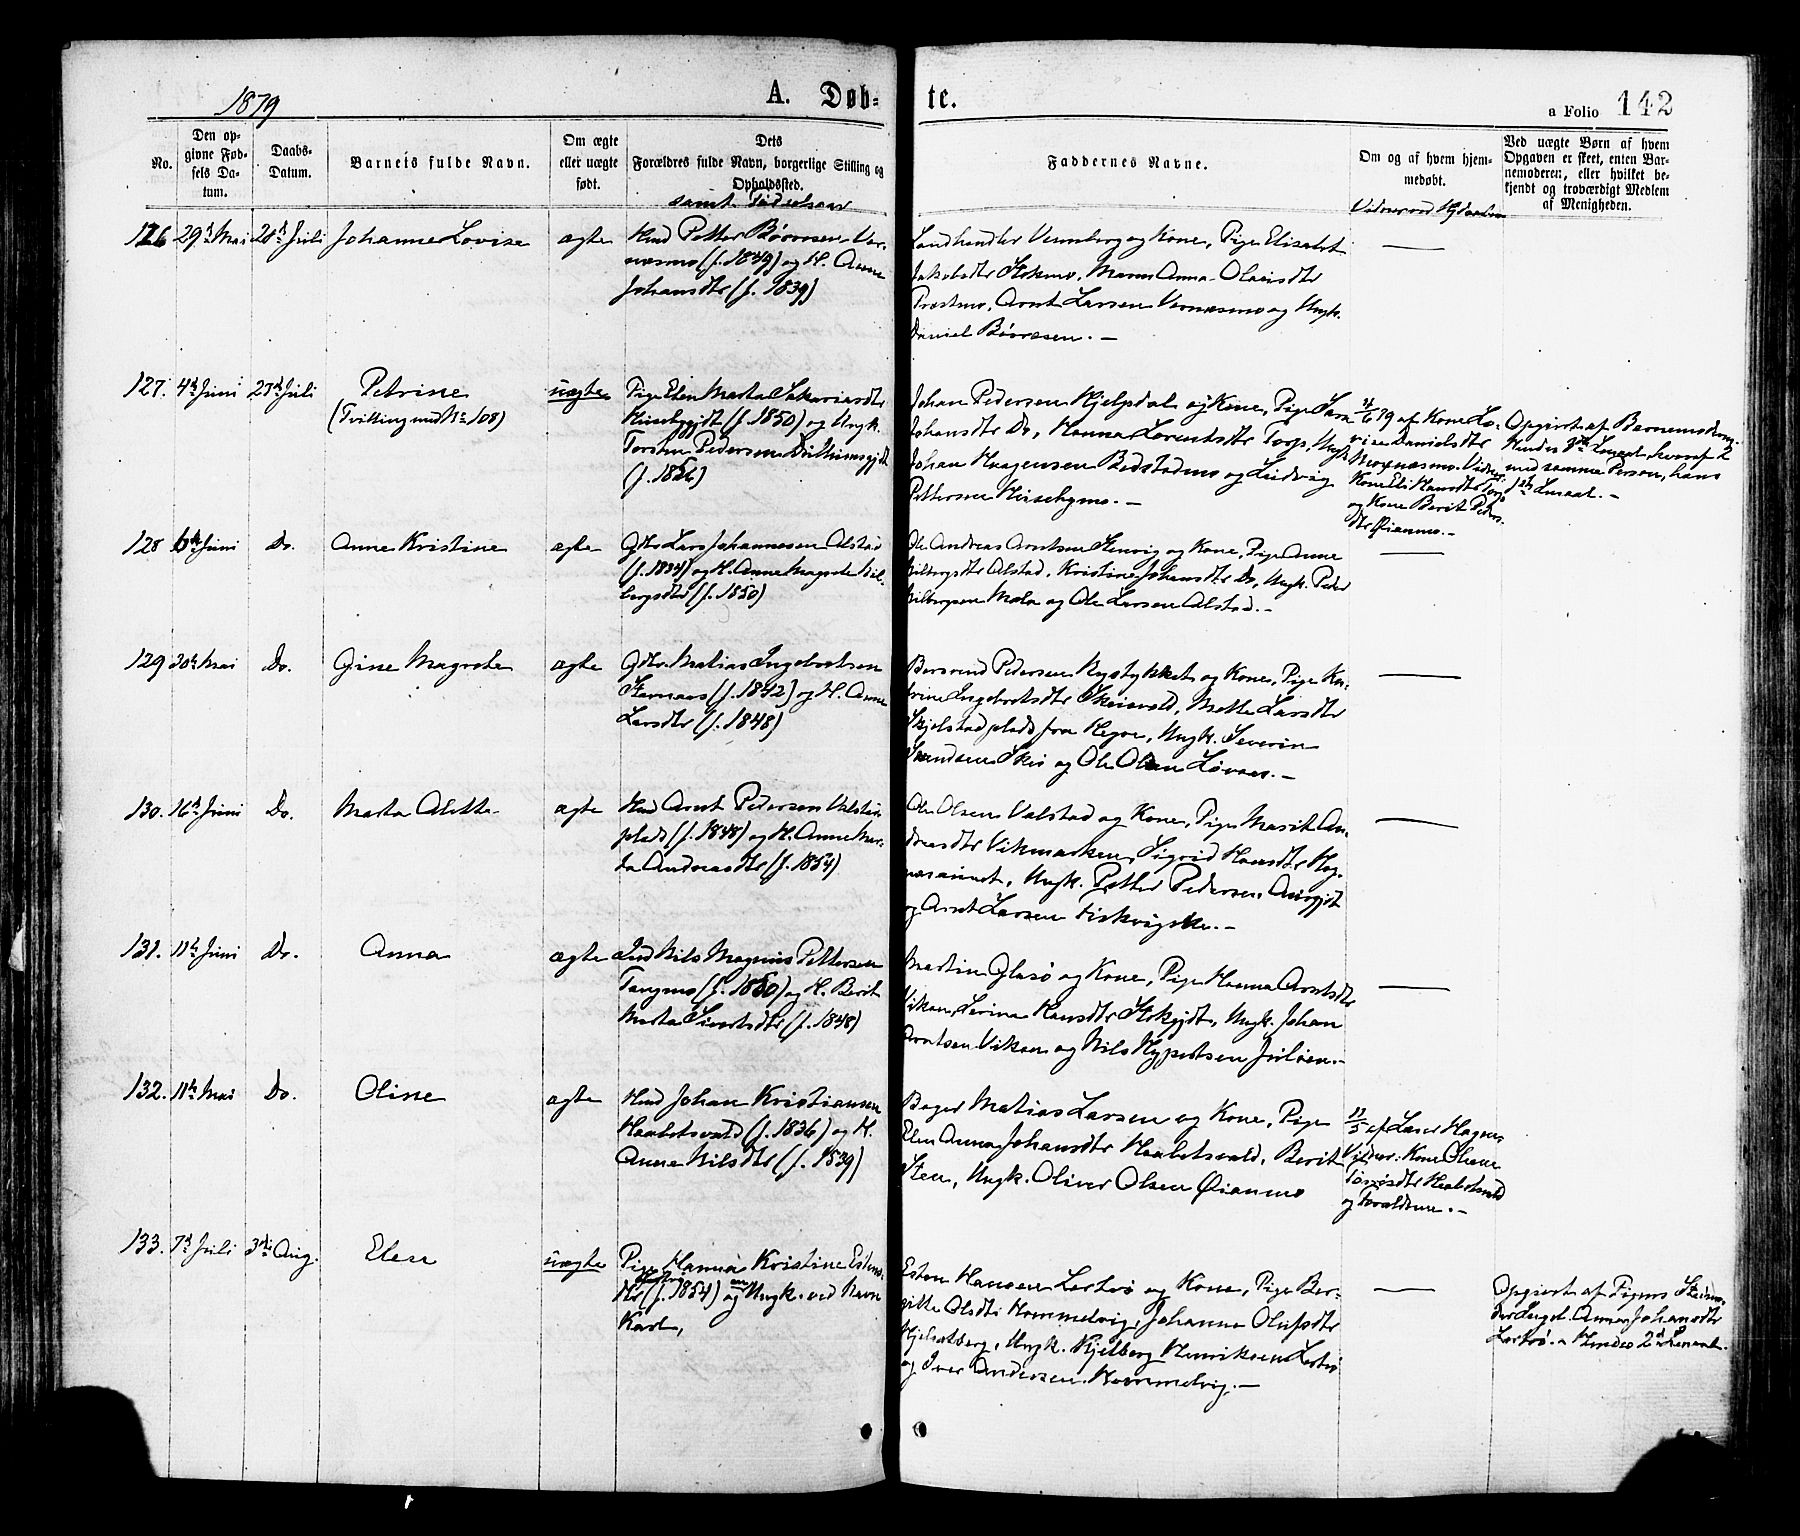 1879
A. Døb-
te.
a Folio 142
No.
Den op-
givne Fød-
sels Da-
tum.
Daabs-
Datum.
Barnets fulde Navn.
Om ægte
eller uægte
født.
Dets
Forældres fulde Navn, borgerlige Stilling og
Opholdssted.
samt Fødselsaar
Faddernes Navne.
Om og af hvem hjem-
medøbt.
Vidner ved Hjdaaben
Ved uægte Børn af hvem
Opgaven er skeet, enten Bar-
nemoderen, eller hvilket be-
kjendt og troværdigt Medlem
af Menigheden.
126 29de Mai Juli Johanne Lovise ægte Hmd Petter Børresen Ver-
næsmo (f. 1849) og H. Anne
Johansdtr (f. 1839)
Landhandler og Kone, Pige Elisabet
Jakobsdtr Momo, Anna
Præstmo, Arnt Larsen Vernæsmo og Ungk.
Daniel Børresen. -
127. 4de Juni 27de Juli Petrine
(Tvilling med No 108)
uægte
Pige Elen Marta Sakariasdtr
(f. 1850) og Ungk.
Pedersen
(f. 1856)
Johan Pedersen Hjelpdal og Kone, Pige Sara
Johansdtr Do, Hanna Lorentsdtr Torp, Ungk.
Johan Haagensen og Ludvig
Pettersen
4/6 79 af Kone Lo-
vise Danielsdtr
Vernæsmo. Vidner:
Kone Eli Hansdtr Torp
og Kone Berit Peders-
dtr Øianmo. -
Opgivet af Barnemoderen.
Hendes Leiermaal, hvoraf 2
med samme Person, hans
1ste Lmaal. -
128 6te Juni Do. Anne Kristine ægte Gbr. Lars Johannesen Alstad
(f. 1834) og H. Anne Magrete Hil-
bergsdtr (f. 1850)
Ole Andreas Arntsen Stenvig og Kone, Pige Anne
Hilbergsdtr Alstad, Kristine Johansdtr Do, Ungk. Peder
Hilbergsen Mæla og Ole Larsen Alstad. -
129 Mai Do. Gine Magrete ægte Gbr. Matias Ingebretsen
(f. 1842) og H. Anne
Larsdtr (f. 1848)
Pedersen Rystykket og Kone, Pige Ka-
trine Ingebretsdtr Skeisvold, Mette Larsdtr
Skjelstadplads fra Hegre, Ungk. Severin
og Ole Olsen -
130. 16de Juni Do. Marta Alette ægte Hmd Arnt Pedersen Valstad
plads (f. 1848) og H. Anne Mar-
ta Andreasdtr (f. 1854)
Ole Olsen Valstad og Kone, Pige Marit An-
dreasdtr Vikmarken, Sigrid Hansdtr
Ungk. Petter Pedersen
og Arnt Larsen -
131. 11te Juni Do. Anna ægte Nils Magnus Pettersen
Tangmo (f. 1850) og H. Berit
Marta Sivertsdtr (f. 1848)
Martin Glasø og Kone, Pige Hanna Arntsdtr
Viken, Serina Hansdtr Ungk. Johan
Arntsen Viken og Nils -
132. 11te Mai Do. Oline ægte Hmd Johan Kristiansen
Haabetsvald (f. 1836) og H.
Anne Nilsdtr (f. 1839)
Bager Matias Larsen og Kone, Pige
Elen Anna Johansdtr Haabetsvald, Berit
Sten, Ungk. Oliver Olsen Øianmo
11/5 af Hagen
Vidner: Kone
Haabetsvald
og Forældrene. -
133. 7de Juli 3die Aug. Elen uægte Pige Hanna Kristine Estens-
dtr (f. 1854) og en Ungk. ved Navn
Karl,
Esten Hansen og Kone, Pige Ber-
gitte Olsdtr Hommelvig, Johanna Olufsdtr
Hjelsetberg, Ungk. Kjelberg Henriksen
og Iver Andersen Hommelvig. -
Opgivet af Pigens Stemo-
der Anna Johansdtr
Hendes 2det Lmaal.